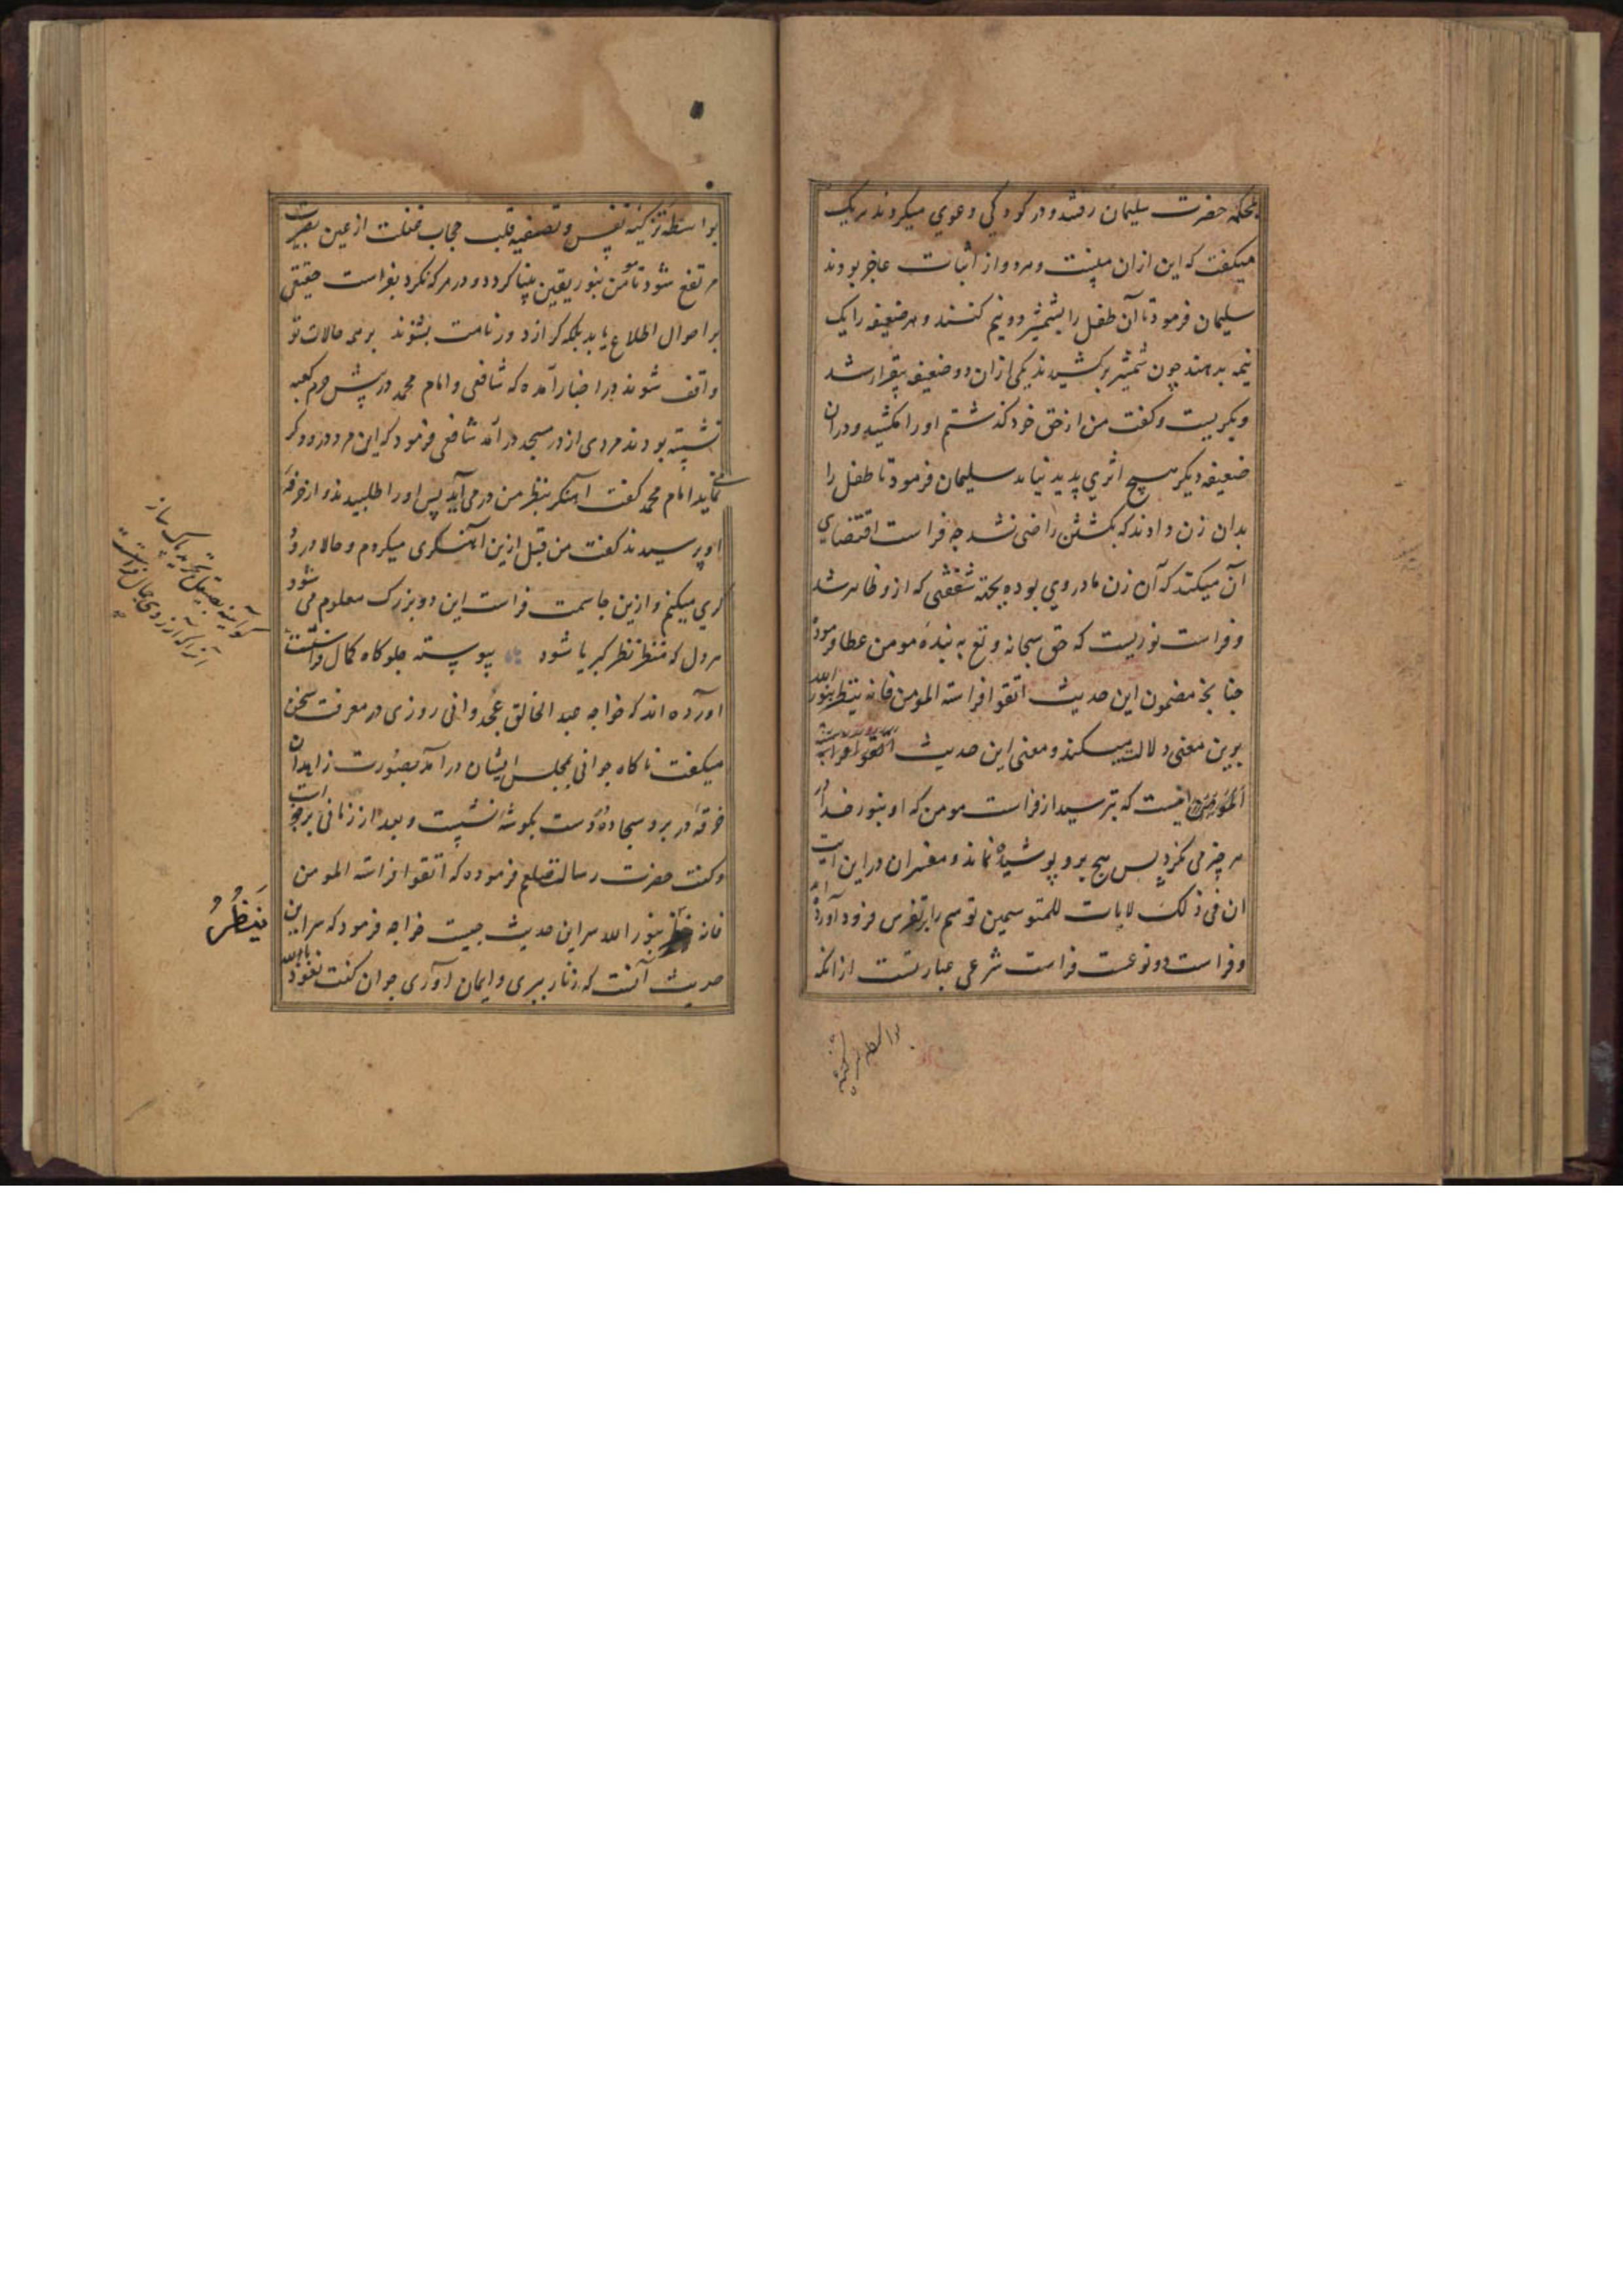 بمحکمه حضرت سلیمان رفتند و در کودکی دعوی میکردند هر یک
میگفت که این ازان منست و هر دو از اثبات عاجز بودند
سلیمان فرمود تا آن طفل را بشمشیر دو نیم کنند و هر ضعیفه را یک
نیمه بدهند چون شمشیر برکشیدند یکی ازان دو ضعیفه بیقرار شد
و بگریست و گفت من از حق خود گذشتم او را مکشید و در ان
ضعیفه دیگر هیچ اثری پدید نیامد سلیمان فرمود تا طفل را
بدان زن دادند که بکشتن راضی نشد چه فراست اقتضای
آن میکند که آن زن مادر وی بوده بجهة شفقتی که ازو ظاهر شد
و فراست نوریست که حق سبحانه و تع به بنده مومن عطا فرموده
چنانچه مضمون این حدیث اتقوا فراسة المومن فانه ینظر بنور الله
برین معنی دلالت میکند و معنی این حدیث اتقوا فراسة
المومن اینست که بترسید از فراست مومن که او بنور خدا
هر چیز می نگرد پس هیچ برو پوشیده نماند و مفسران در این آیت
ان فی ذلک لایات للمتوسمین توسم را بتفرس فرود آورده اند
و فراست دو نوعست فراست شرعی عبارتست ازانکه
بواسطه تزکیه
بواسطه تزکیه نفس و تصفیه قلب حجاب غفلت از عین بصیرت
مرتفع شود تا مومن بنور یقین بینا کردد و در هر که نکرد بفراست حقیقی
بر احوال اطلاع یابد بلکه کر از دور نامت بشنوند بر همه حالات تو
واقف شوند در اخبار آمده که شافعی و امام محمد در پیش حرم کعبه
نشسته بودند مردی از در مسجد در آمد شافعی فرمود که این مرد درودکر
می نماید امام محمد گفت آهنکر بنظر من در می آید پس او را طلبیدند و از حرفه
او پرسیدند گفت من قبل ازین آهنکری میکردم و حالا درود
کری میکنم و ازین جا سمت فراست این دو بزرک معلوم می شود
هر دل که منظر نظر کبریا شود پیوسته جلوه کاه کمال فراستست
آورده اند که خواجه عبد الخالق غجدوانی روزی در معرفت سخن
میگفت ناکاه جوانی بمجلس ایشان در آمد بصورت زاهدان
خرقه در بر و سجاده بر دوست بکوشه نشست و بعد از زمانی برخاست
و گفت حضرت رسالت صلعم فرموده که اتقوا فراسة المومن
فانه ینظر بنور الله سر این حدیث چیست خواجه فرمود که سر این
حدیث آنست که زنار ببری و ایمان آوری جوان گفت نعوذ بالله
کو آینه بصیقل تجرید پاک ساز
آنرا که آرزوی جمال فراستست
یَنظُرُ